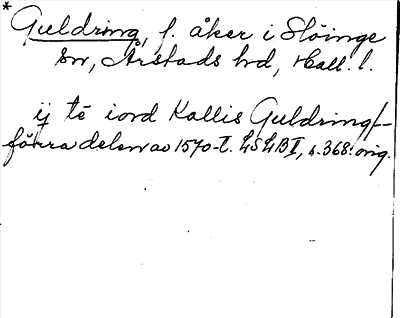 * Guldring, f. åker i Slöinge
sn, Årstads hd, Hall. l.
ij tē iord Kallis Guldring/-
förra delen av 1570-t. LSLB II, s. 368: orig.